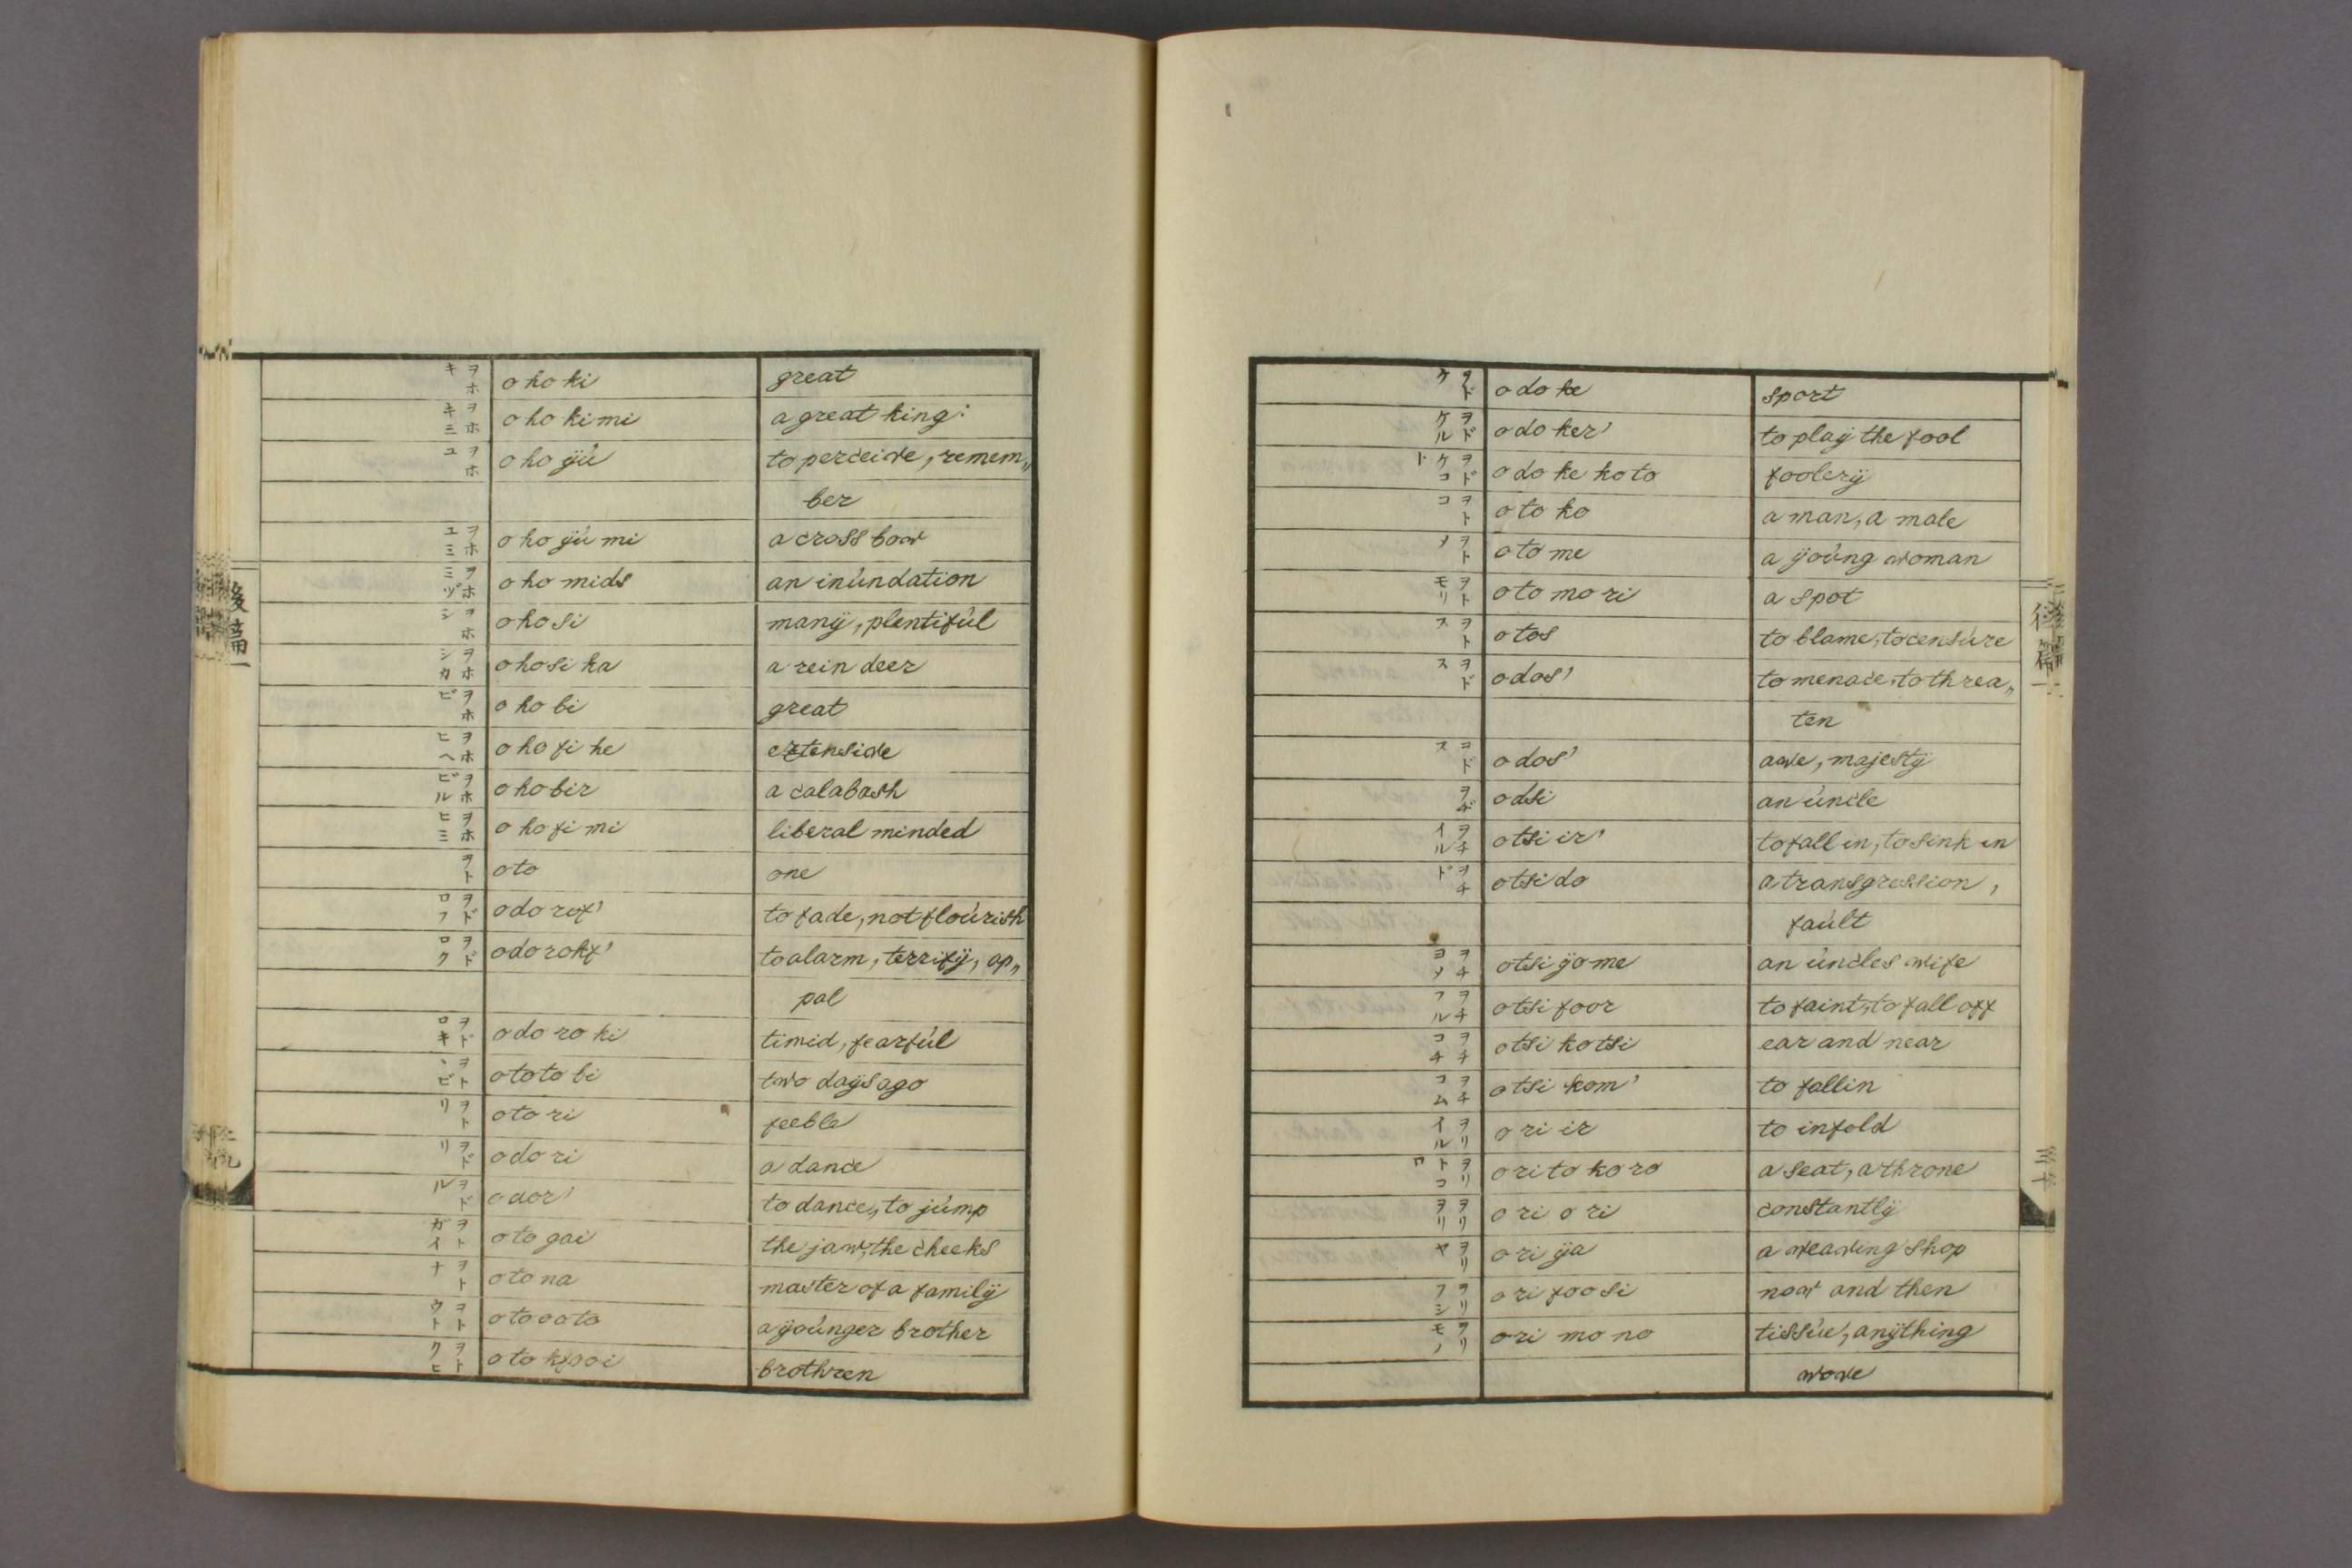 ヲホキ ohoki great
ヲホキミ oho kimi a great king:
ヲホユ oho ÿú to perceive, remem„
ber
ヲホユミ oho ÿúmi a cross bow
ヲホミヅ oho mids an inúndation
ヲホシ ohosi manÿ, plentifúl
ヲホシカ ohosi ka a rein deer
ヲホビ oho bi great
ヲホヒヘ oho fi he extensive
ヲホビル oho bir a calabash
ヲホヒミ oho fi mi liberal minded
ヲト oto one
ヲドロフ odo rof' to fade, not floúrish
ヲドロク odo rokf' to alarm, terrifÿ, ap„
pal
ヲドロキ odo ro ki timid, fearfúl
ヲトヽビ ototo bi two daÿs ago
ヲトリ oto ri feeble
ヲドリ odo ri a dance
ヲドル odor' to dance, to júmp
ヲトガイ oto gai the jaw, the cheeks
ヲトナ oto na master of a familÿ
ヲトウト oto oo to a ÿoúnger brother
ヲトクヒ oto kfooi brothren
後篇一
ヲドケ odo ke sport
ヲドケル odo ker' to plaÿ the fool
ヲドケコト odo ke koto foolerÿ
ヲトコ oto ko a man, a male
ヲトメ oto me a ÿoúng woman
ヲトモリ oto mo ri a spot
ヲトス otos to blame, to censúre
ヲドス odos' to menace, to threa„
ten
ヲドス odos' awe, majestÿ
ヲヂ odsi an úncle
ヲチイル otsi ir' to fall in, to sink in
ヲチド otsi do a transgression,
faúlt
ヲチヨメ otsi ÿo me an úncles wife
ヲチフル otsi foor to faint, to fall off
ヲチコチ otsi kotsi ear and near
ヲチコム otsi kom' to fallin
ヲリイル o ri ir to infold
ヲリトコロ o ri to ko ro a seat, a throne
ヲリヲリ o ri o ri constantlÿ
ヲリヤ o ri ÿa a weaving shop
ヲリフシ o ri foo si now and then
ヲリモノ o ri mo no tissúe, anÿthing
wove
後篇一
三十